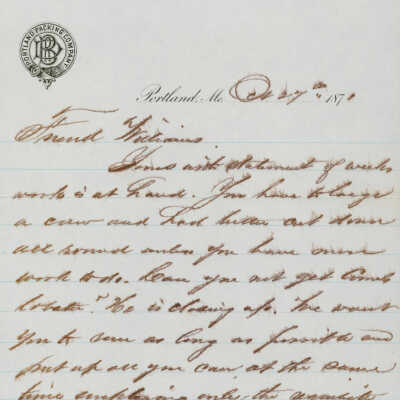 PORTLAND PACKING COMPANY
Portland, Me. Oct 27th 1870
Friend Williams
Yours with statement of weeks
work is at hand. You have to large
a crew and had better cut down
all round unless you have more
work to do. Can you not get
He is closing up. We want
you to run as long as possible and
put up all you can, at the same
time employing only the requisite